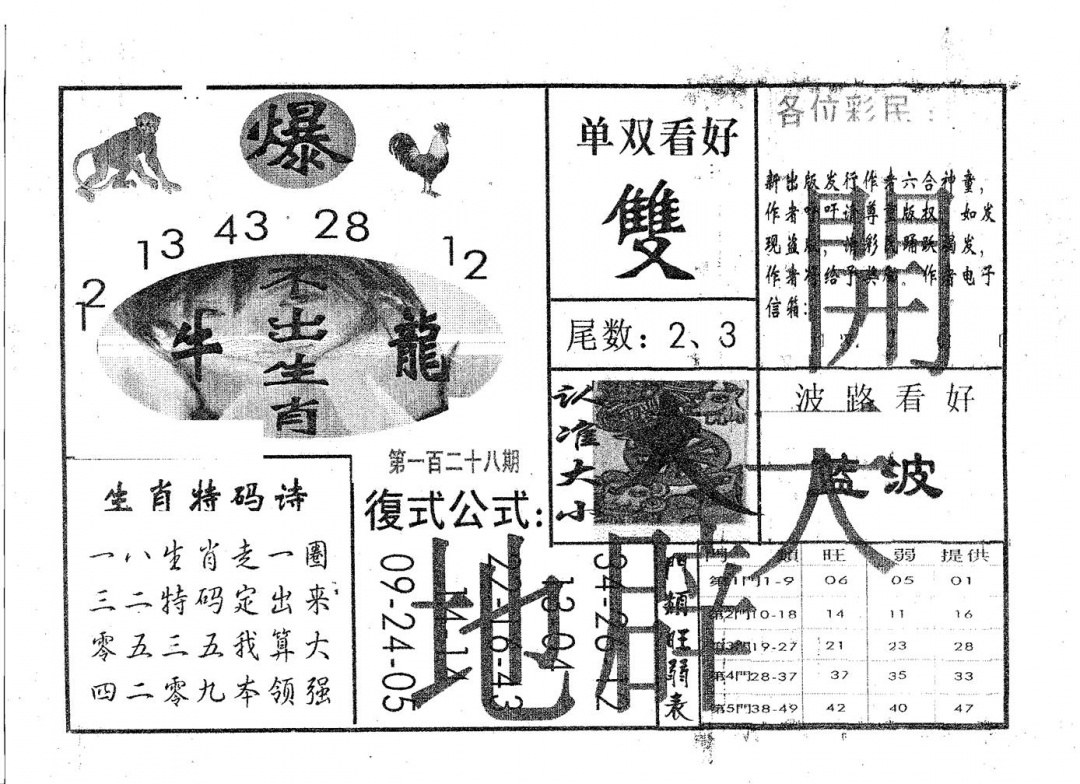 爆
13 43 28 12
12
不出生肖
牛 龍
单双看好
雙
尾数：2、3
认准大小
各位彩民：
新出版发行作者六合神童，
作者呼吁请尊重版权，如发
现盗版，请彩民踊跃
作者将给予奖 作者电子
信箱：
開
波路看好
蓝波
天
第一百二十八期
復式公式：
09-24-05
22-16-43
34-26-12
13 04
地
生肖特码诗
一八生肖走一圈
三二特码定出来
零五三五我算大
四二零九本领强
門類旺弱表
門 類 旺 弱 提供
第1門1-9 06 05 01
第2門10-18 14 11 16
第3門19-27 21 23 28
第4門28-37 37 35 33
第5門38-49 42 40 47